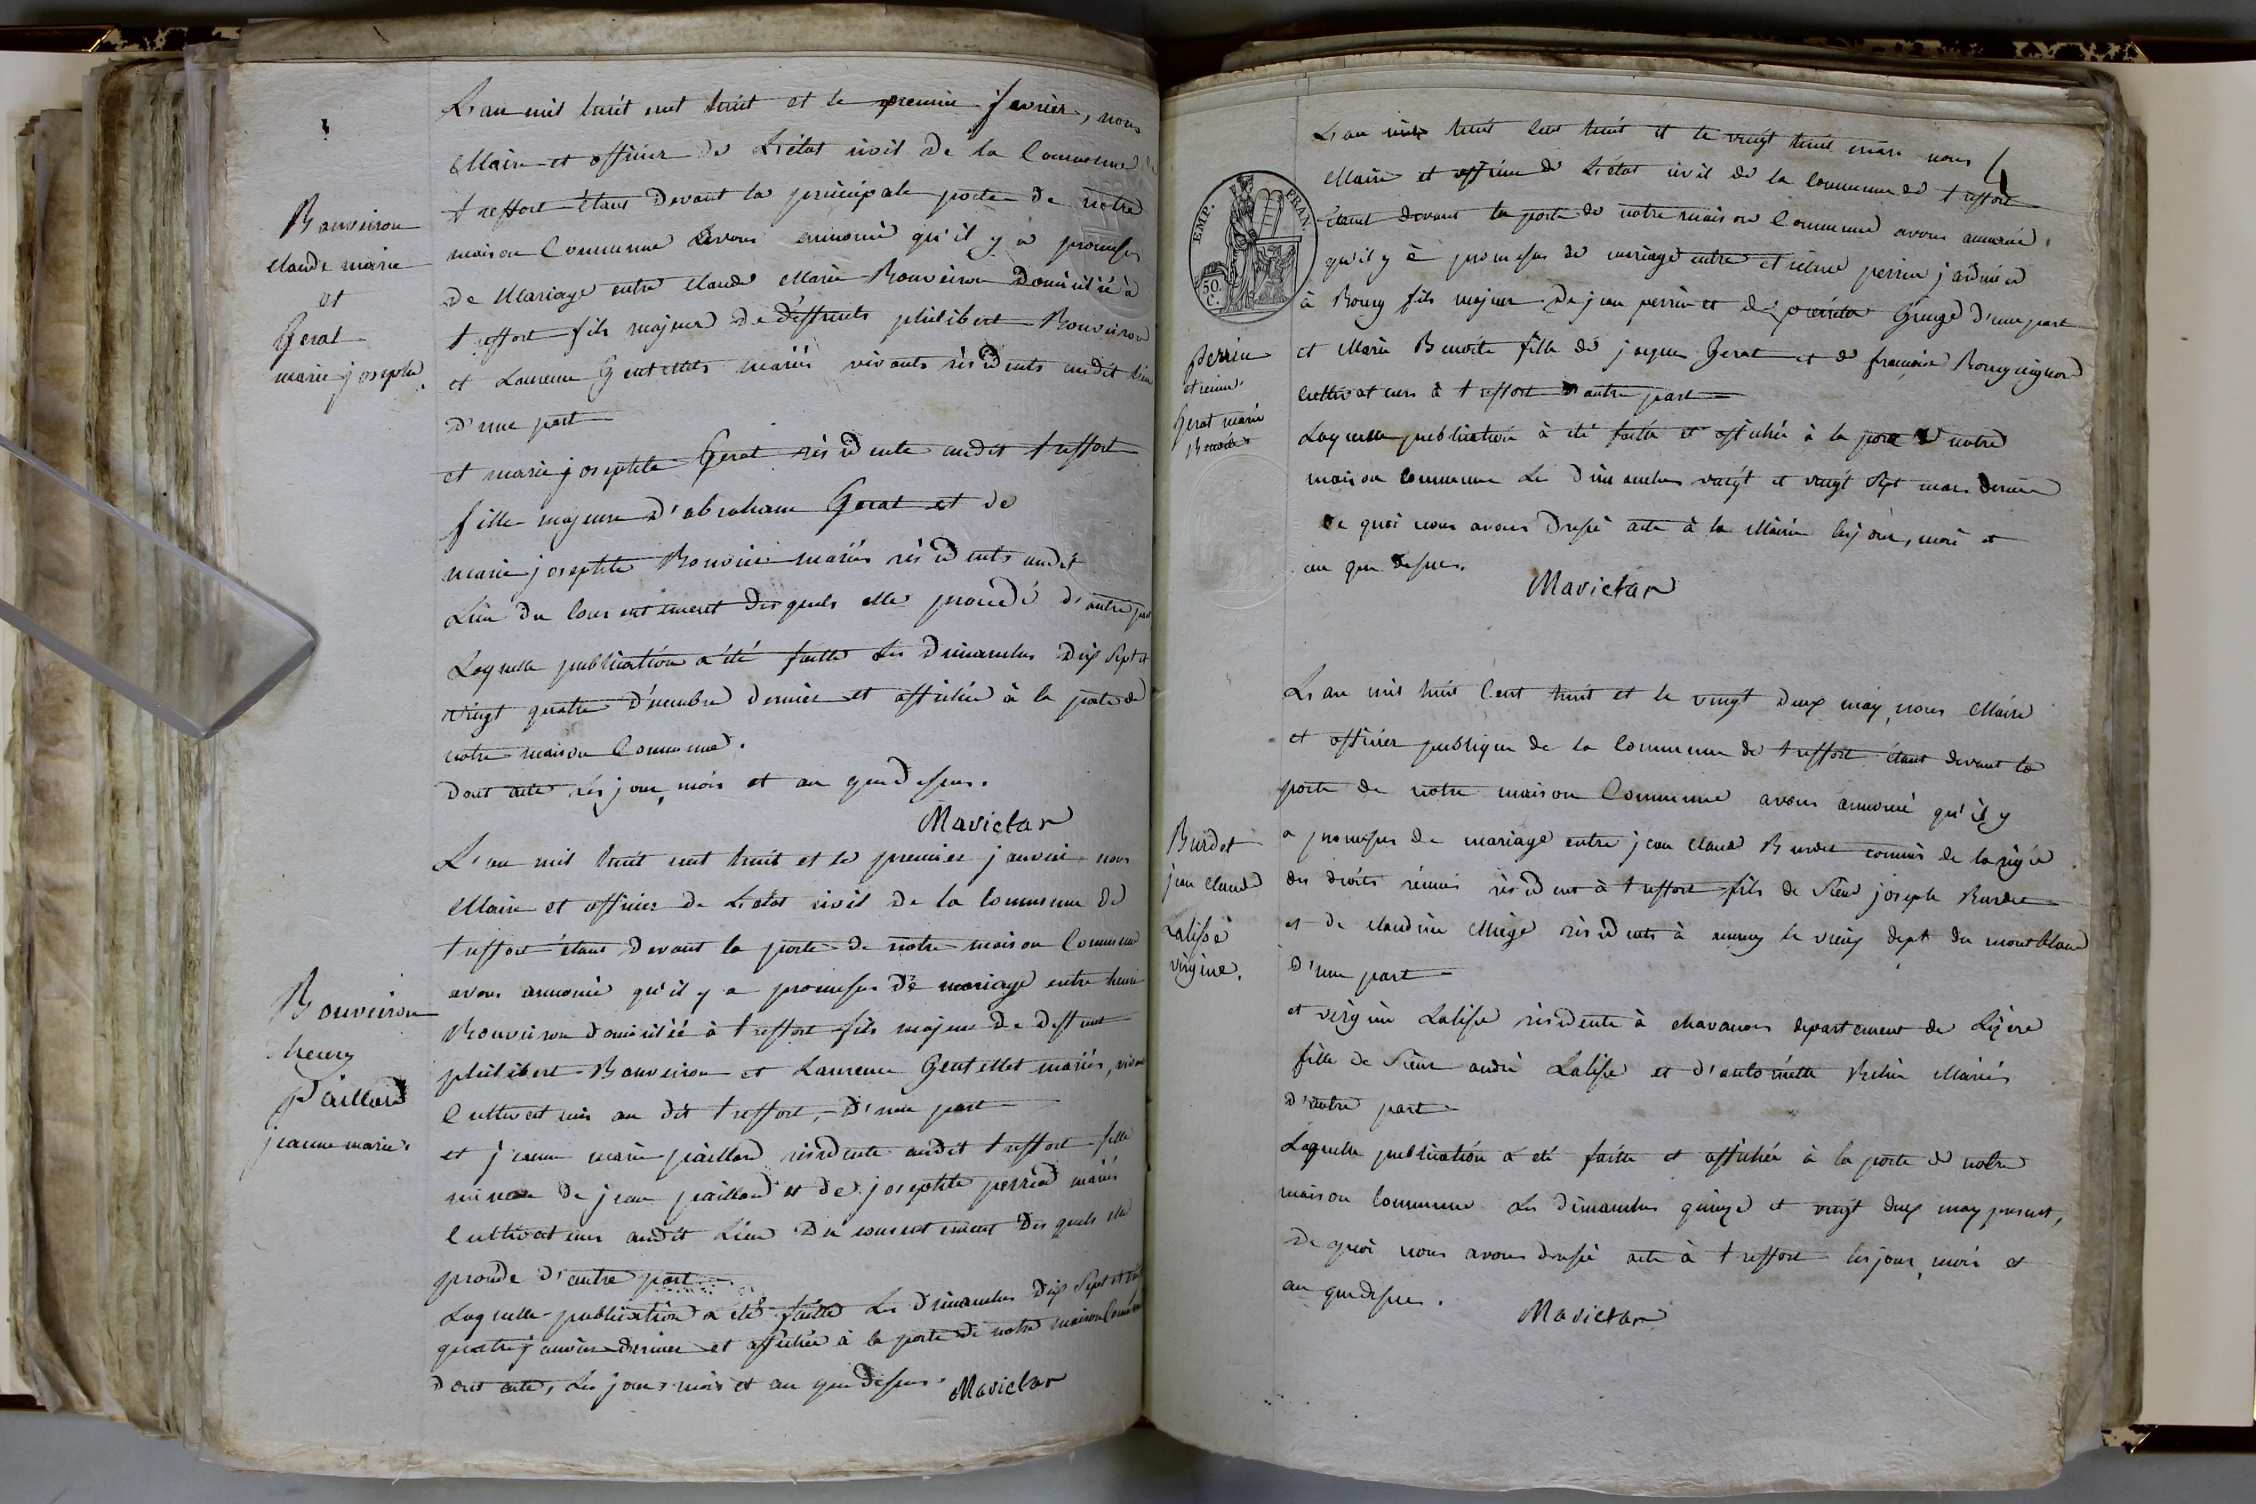 L'an mil huit cent huit et le premier fevrier, nous
Maire et officier de L'état civil de la Commune de
treffort étant devant la principale porte de notre
maison Commune avons annoncé qu'il y a promesses
de Mariage entre Claude Marie Bouveiron domicilié à
treffort fils majeur de deffunts philibert Bouveiron
et Laurence Gentillet mariés vivants résidents audit lieu
d'une part
et marie josephte Gerat résidente audit treffort
fille majeure d'abraham Gerat et de
marie josephte Bouvier mariés résidents audit
Lieu du consentement desquels elle procede d'autre part
Laquelle publication a été faitte les dimanches dix sept et
vingt quatre decembre dernier et affichée à la porte de
notre maison Commune.
dont acte les jour, mois et an que dessus.
Mavictar
Bouveiron
claude marie
et
Gerat
marie josephte.
L'an mil huit cent huit et le premier janvier nous
Maire et officier de L'état civil de la Commune de
treffort étant devant la porte de notre maison Commune
avons annoncé qu'il y a promesses de mariage entre henri
Bouveiron domicilié à treffort fils majeur de deffunt
philibert Bouveiron et Laurence Gentillet mariés, vivant
Cultivateurs au dit treffort, d'une part
et jeanne marie paillard résidente audit treffort fille
mineure de jean paillard et de josephte perriod mariés
Cultivateurs audit Lieu du consentement desquels elle
procede d'autre part
Laquelle publication a été faitte les dimanches dix sept et vingt
quatre janvier dernier et affichée à la porte de notre maison Commune
dont acte, les jour, mois et an que dessus. Mavictar
Bouveiron
henry
Paillard
jeanne marie.
L'an mil huit cent huit et le vingt huit mars nous
Maire et officier de L'état civil de la Commune de treffort
étant devant la porte de notre maison Commune avons annoncé
qu'il y a promesses de mariage entre etienne perrin jardinier
à Bourg fils majeur de jean perrin et de Gringe d'une part
et Marie Benoite fille de jacques Gerat et de françoise Bourguignon
cultivateurs à treffort d'autre part
Laquelle publication à été faitte et affichée à la porte de notre
maison commune Les dimanches vingt et vingt sept mars dernier
de quoi nous avons dressé acte à la Mairie les jour, mois et
an que dessus.
Mavictar
EMP. FRAN.
50. C.
Perrin
etienne.
Gerat marie
Benoite
L'an mil huit Cent huit et le vingt deux may, nous Maire
et officier publique de la Commune de treffort étant devant la
porte de notre maison Commune avons annoncé qu'il y
a promesses de mariage entre jean claude Burdet commis de la régie
des droits réunis résident à treffort fils de Sieur joseph Burdet
et de claudine Miège résidents à annecy le vieux dept du mont blanc
d'une part
et virginie Lalisse résidente à chavanos departement de Lizere
fille de Sieur andré Lalisse et d'antoinette Mariés
d'autre part
Laquelle publication a eté faitte et affichée à la porte de notre
maison Commune Les dimanches quinze et vingt deux may present,
de quoi nous avons dressé acte à treffort les jour, mois et
an que dessus.
Mavictar
Burdet
jean claude
Lalisse
virginie.